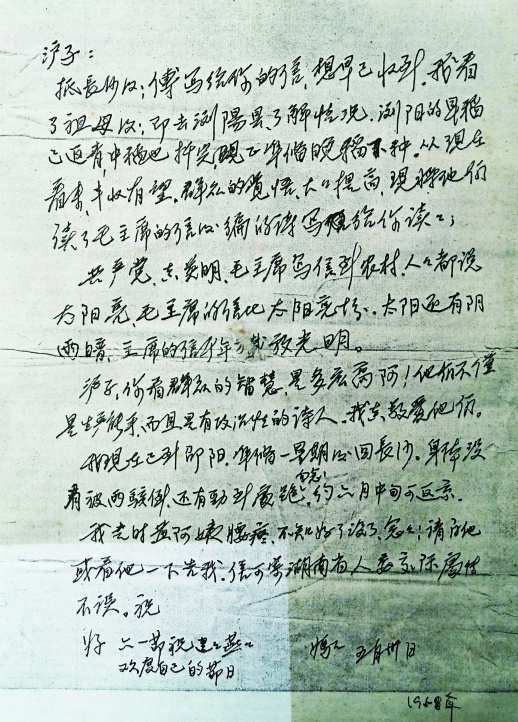 沪子：
抵長沙次；傅写给你的信，想早已收到，我看
了祖母次；即去浏陽县了解情况。浏阳的早稻
已返青，中稻也插完，现正準備晚稻下种。从现在
看来，丰收有望。群众的覚悟，大大提高，现将他们
读了毛主席的信后编的诗写给你读读：
共产党，真英明，毛主席写信到农村，人人都说
太阳亮，毛主席的信比太阳亮十分。太阳还有阴
雨暗，主席的信千年万载放光明。
沪子，你看群众的智慧，是多么高阿！他们不僅
是生产能手，而且是有政治性的诗人。我真敬爱他们。
我现在已到邵阳，準備一星期后回長沙。身体没
有被雨駭倒，还有勁到處跑，勿念！约六月中旬可返京。
我走时 阿姨腰疼，不知好了没有，念念！请問他
或看他一下告我。信可寄湖南省人委交际處
不误。祝
好 六一節祝建建燕燕
欢度自己的節日
媽媽 五月卅日
1958年